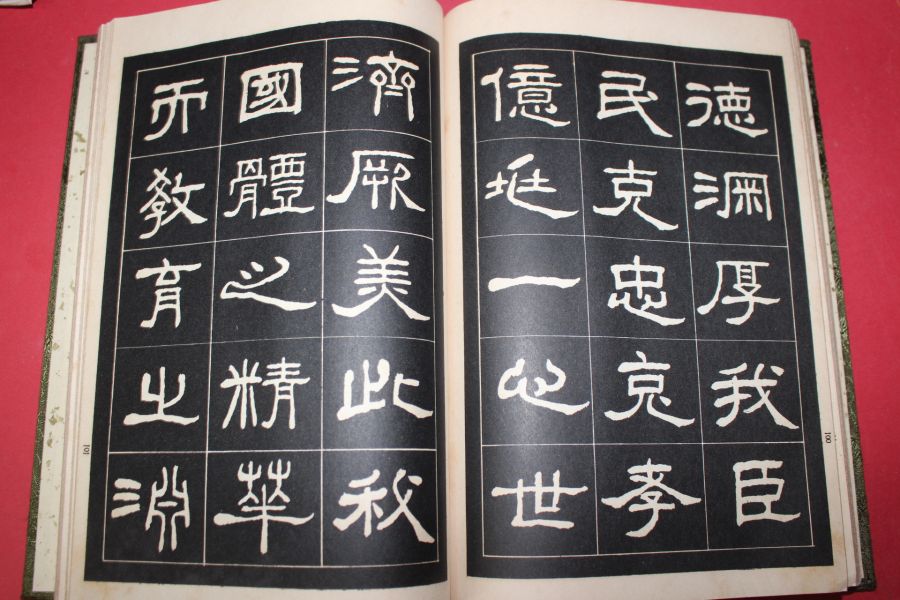 徳深厚我臣
民克忠克孝
億兆一心世
100
濟厥美此我
國體之精華
而教育之淵
101